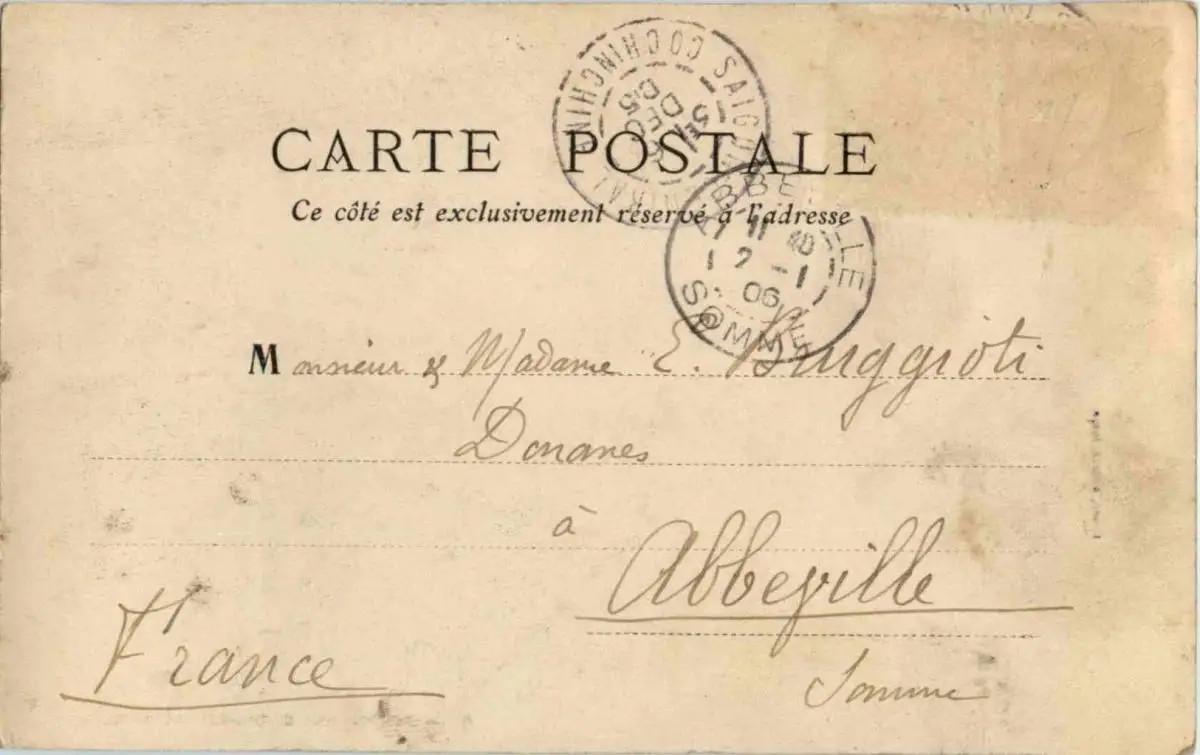 CARTE POSTALE
Ce côté est exclusivement réservé à l'adresse
SAIGON CENTRAL COCHINCHINE
DEC
05
ABBEVILLE
11 40
2 - 1
06
SOMME
Monsieur & Madame E. Pinggioti
Douanes
à
Abbeville
Somme
France